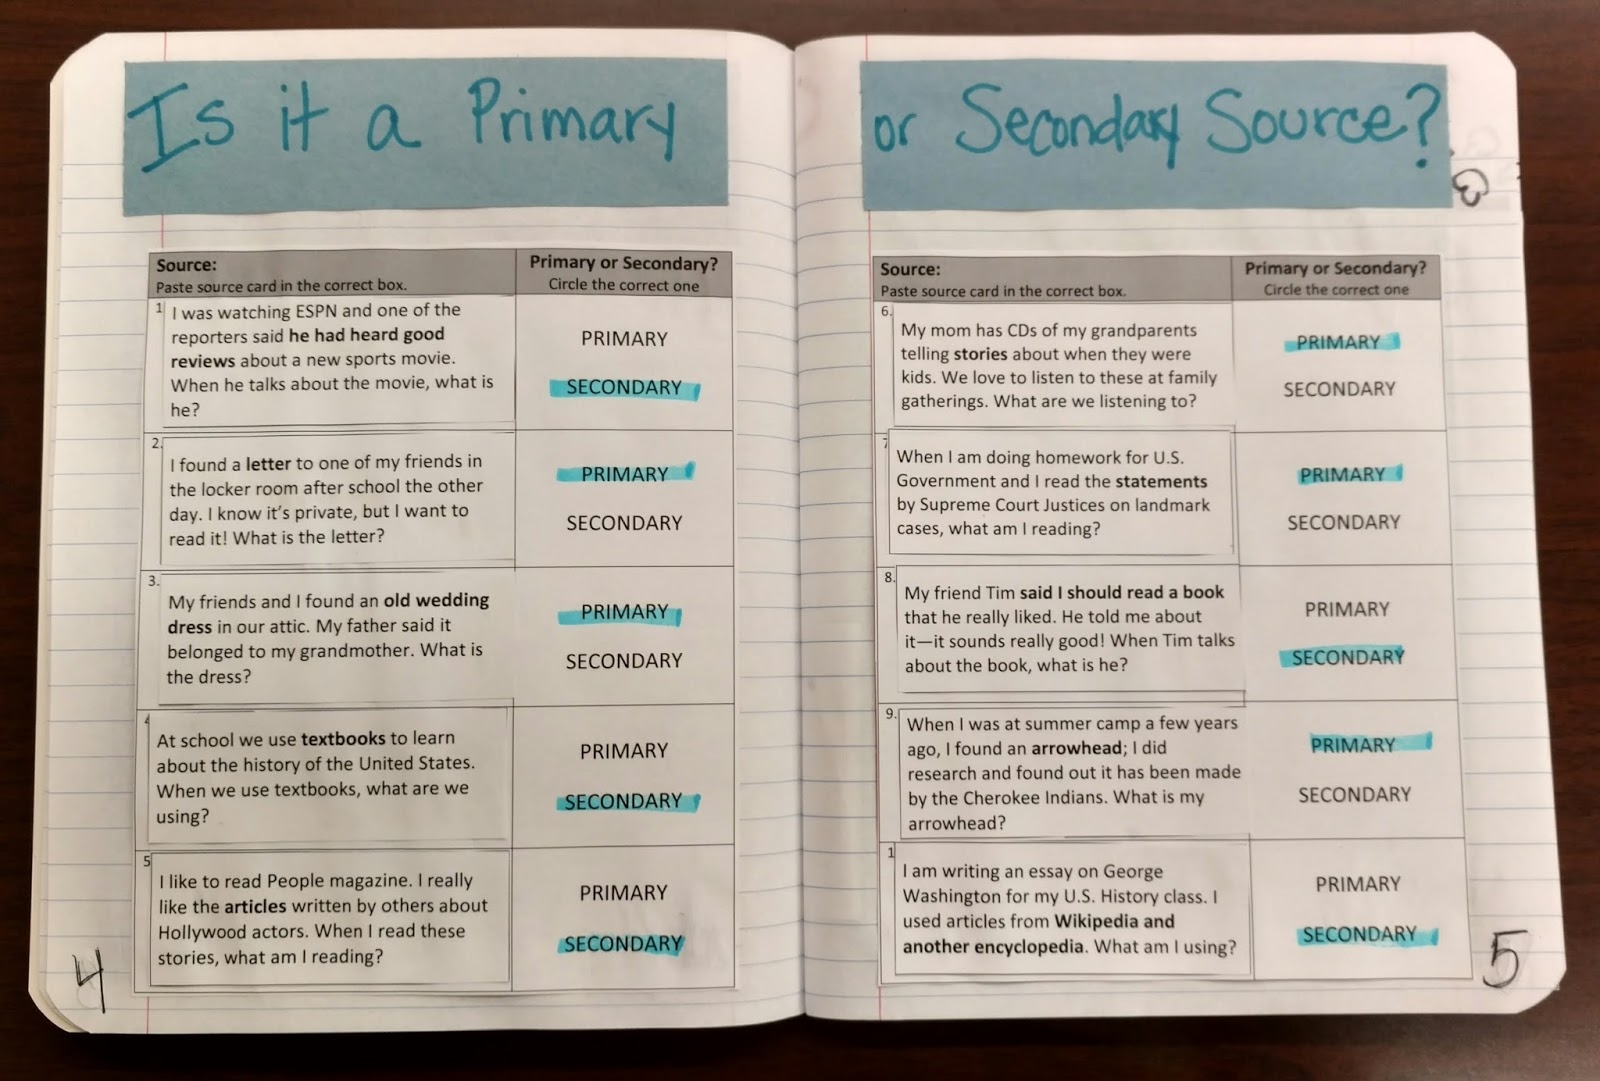 Is it a Primary
Source:
Paste source card in the correct box.
Primary or Secondary?
Circle the correct one
1
I was watching ESPN and one of the
reporters said he had heard good
reviews about a new sports movie.
When he talks about the movie, what is
he?
PRIMARY
SECONDARY
2.
I found a letter to one of my friends in
the locker room after school the other
day. I know it's private, but I want to
read it! What is the letter?
PRIMARY
SECONDARY
3.
My friends and I found an old wedding
dress in our attic. My father said it
belonged to my grandmother. What is
the dress?
PRIMARY
SECONDARY
4
At school we use textbooks to learn
about the history of the United States.
When we use textbooks, what are we
using?
PRIMARY
SECONDARY
5
I like to read People magazine. I really
like the articles written by others about
Hollywood actors. When I read these
stories, what am I reading?
PRIMARY
SECONDARY
4
or Secondary Source?
Source:
Paste source card in the correct box.
Primary or Secondary?
Circle the correct one
6.
My mom has CDs of my grandparents
telling stories about when they were
kids. We love to listen to these at family
gatherings. What are we listening to?
PRIMARY
SECONDARY
7
When I am doing homework for U.S.
Government and I read the statements
by Supreme Court Justices on landmark
cases, what am I reading?
PRIMARY
SECONDARY
8.
My friend Tim said I should read a book
that he really liked. He told me about
it—it sounds really good! When Tim talks
about the book, what is he?
PRIMARY
SECONDARY
9.
When I was at summer camp a few years
ago, I found an arrowhead; I did
research and found out it has been made
by the Cherokee Indians. What is my
arrowhead?
PRIMARY
SECONDARY
1
I am writing an essay on George
Washington for my U.S. History class. I
used articles from Wikipedia and
another encyclopedia. What am I using?
PRIMARY
SECONDARY
5